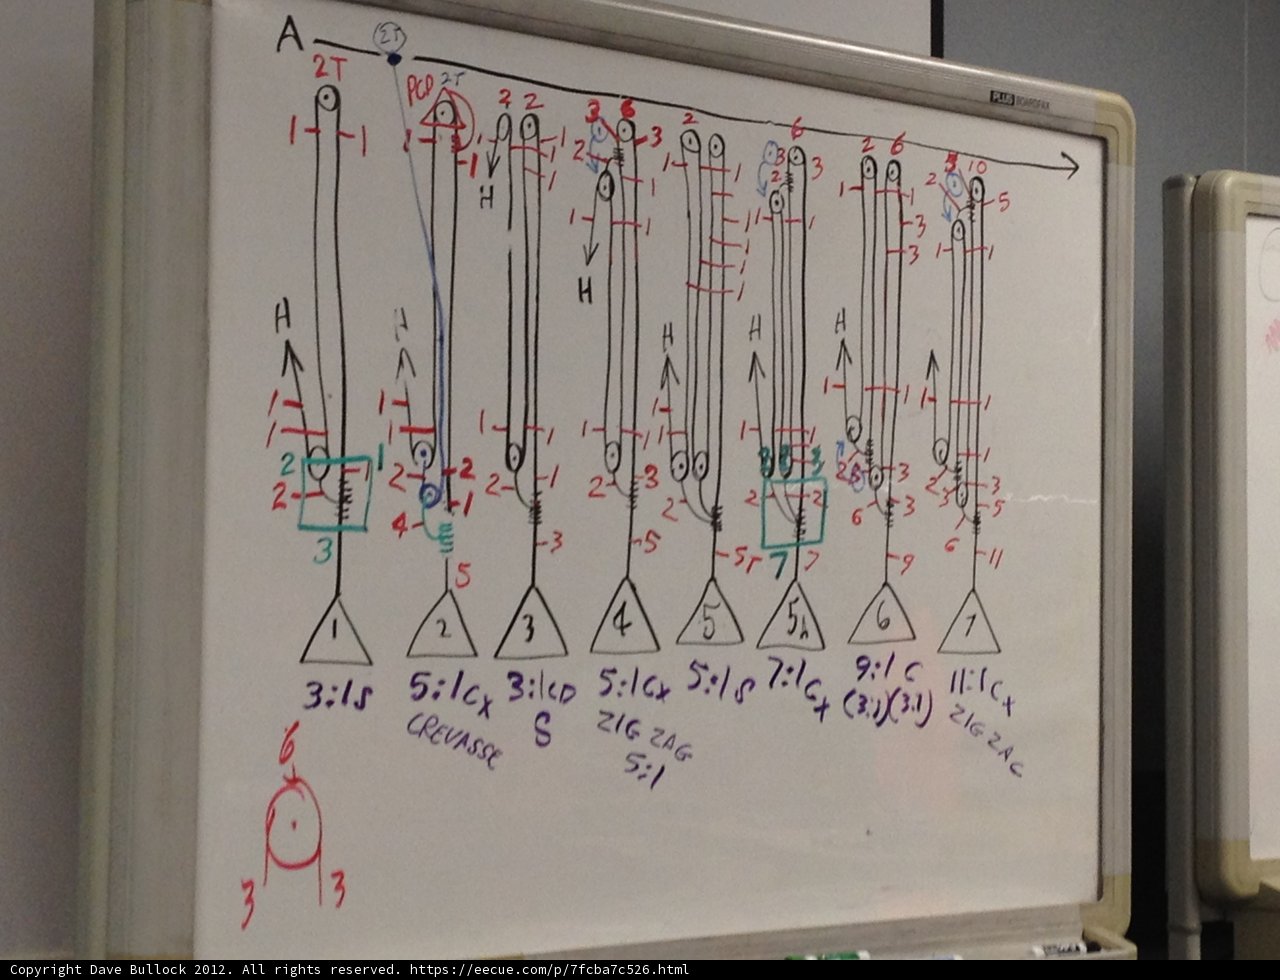 A
2T
2T
PCD 2T
2 2
3 6
2
6
2 6
10
1 1
1 1
1 1
2 3
1
3
2
3
2
5
H
1
1 1
1
1
1
1 1
1 1
3
3
1 1
H
1
1
H H H H H
1 1 1 1
1 1 1 1 1 1 1 1
2 1
2 2 2 3 2 2 3 3
2 1 2 2
4 1 6 3 5
3 5 3 5 5T 7 7 9 6 11
1 2 3 4 5 5h 6 7
3:1S 5:1Cx 3:1CD 5:1Cx 5:1S 7:1Cx 9:1C 11:1Cx
CREVASSE S ZIG ZAG (3:1)(3:1) ZIG ZAG
5:1
6
3 3
PLUS BOARDFAX
Copyright Dave Bullock 2012. All rights reserved. https://eecue.com/p/7fcba7c526.html